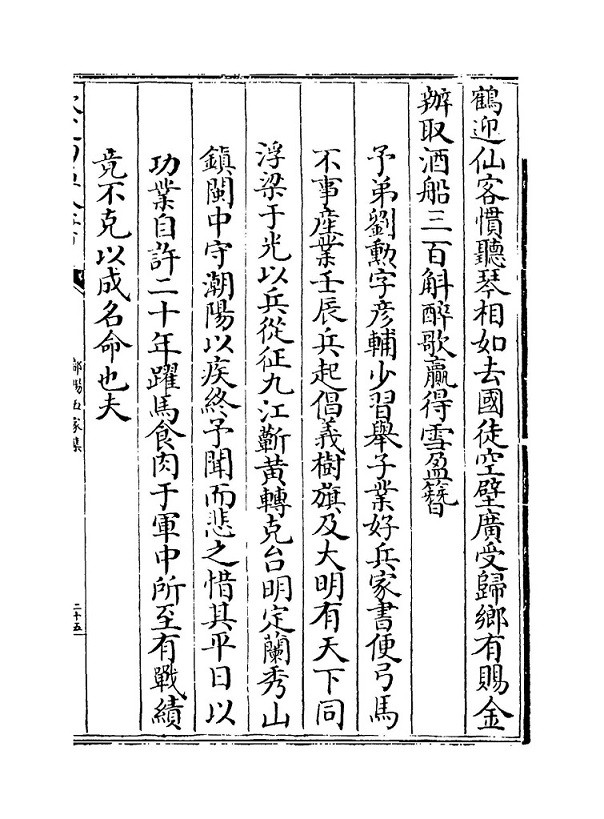 鶴迎仙客慣聽琴相如去國徒空壁廣受歸鄉有賜金
辦取酒船三百斛醉歌贏得雪盈簪
予弟劉勲字彦輔少習舉子業好兵家書便弓馬
不事産業壬辰兵起倡義樹旗及大明有天下同
浮梁于光以兵從征九江蘄黄轉克台明定蘭秀山
鎮閩中守潮陽以疾終予聞而悲之惜其平日以
功業自許二十年躍馬食肉于軍中所至有戰績
竟不克以成名命也夫
鄱陽五家集
二十五